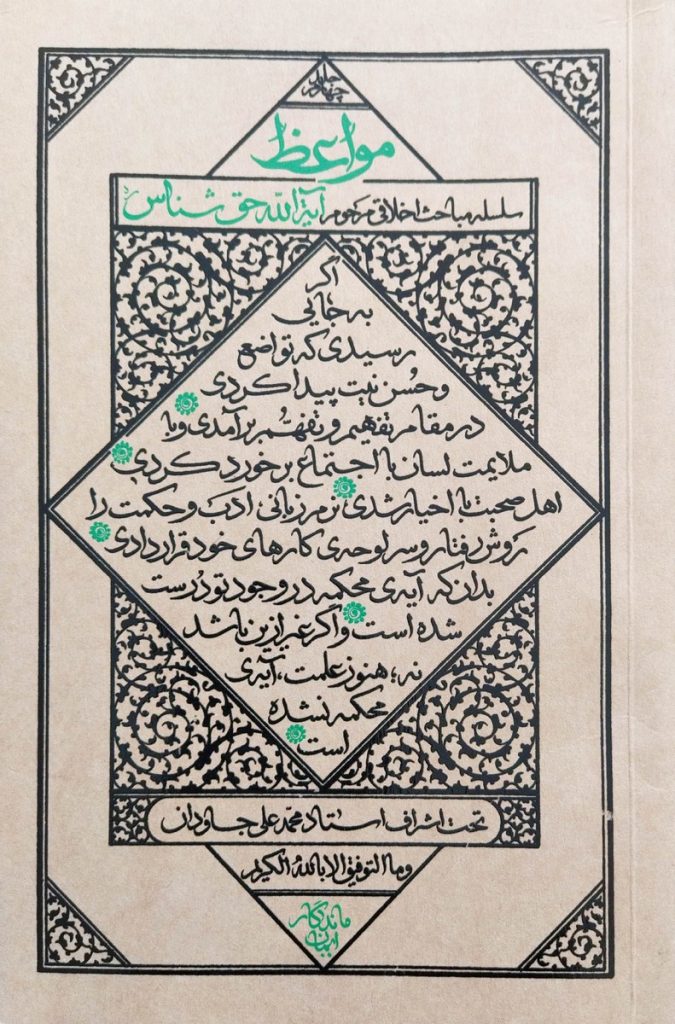 جلد چهارم
مواعظ
سلسله مباحث اخلاقی مرحوم آیة الله حق شناس ره
اگر
به جایی
رسیدی که تواضع
و حُسن نیت پیدا کردی
در مقام تفهیم و تفهّم برآمدی و با
ملایمت لسان با اجتماع برخورد کردی
اهل صحبت با اخیار شدی نرم زبانی ادب و حکمت را
روش رفتار و سرلوحه‌ی کارهای خود قرار دادی
بدان که آیه‌ی محکمه در وجود تو درست
شده است و اگر غیر از این باشد
نه؛ هنوز علمت، آیه‌ی
محکمه نشده
است
تحت اشراف استاد محمّد علی جاودان
وما التوفیق الا بالله الکریم
ماندگار
ایمان